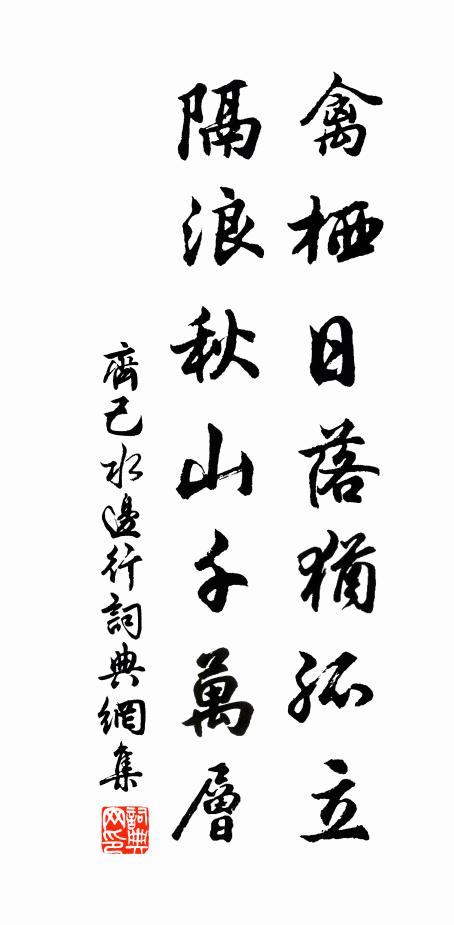 禽栖日落猶孤立
隔浪秋山千萬層
齊己水邊行詞典網集
詞典网印